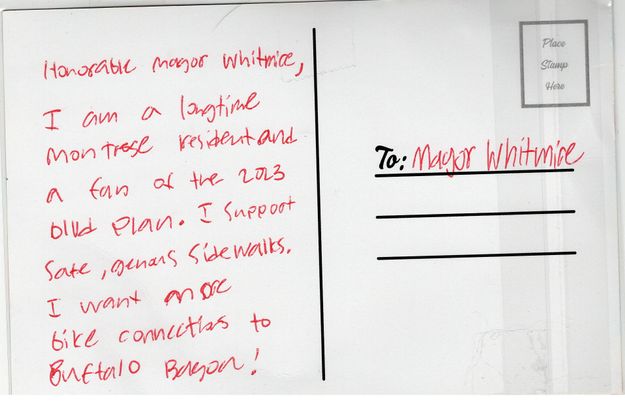 Honorable Mayor Whitmire,
I am a longtime
Montrose resident and
a fan of the 2023
blvd plan. I support
safe, generous sidewalks.
I want more
bike connections to
Buffalo Bayou!
Place
Stamp
Here
To: Mayor Whitmire